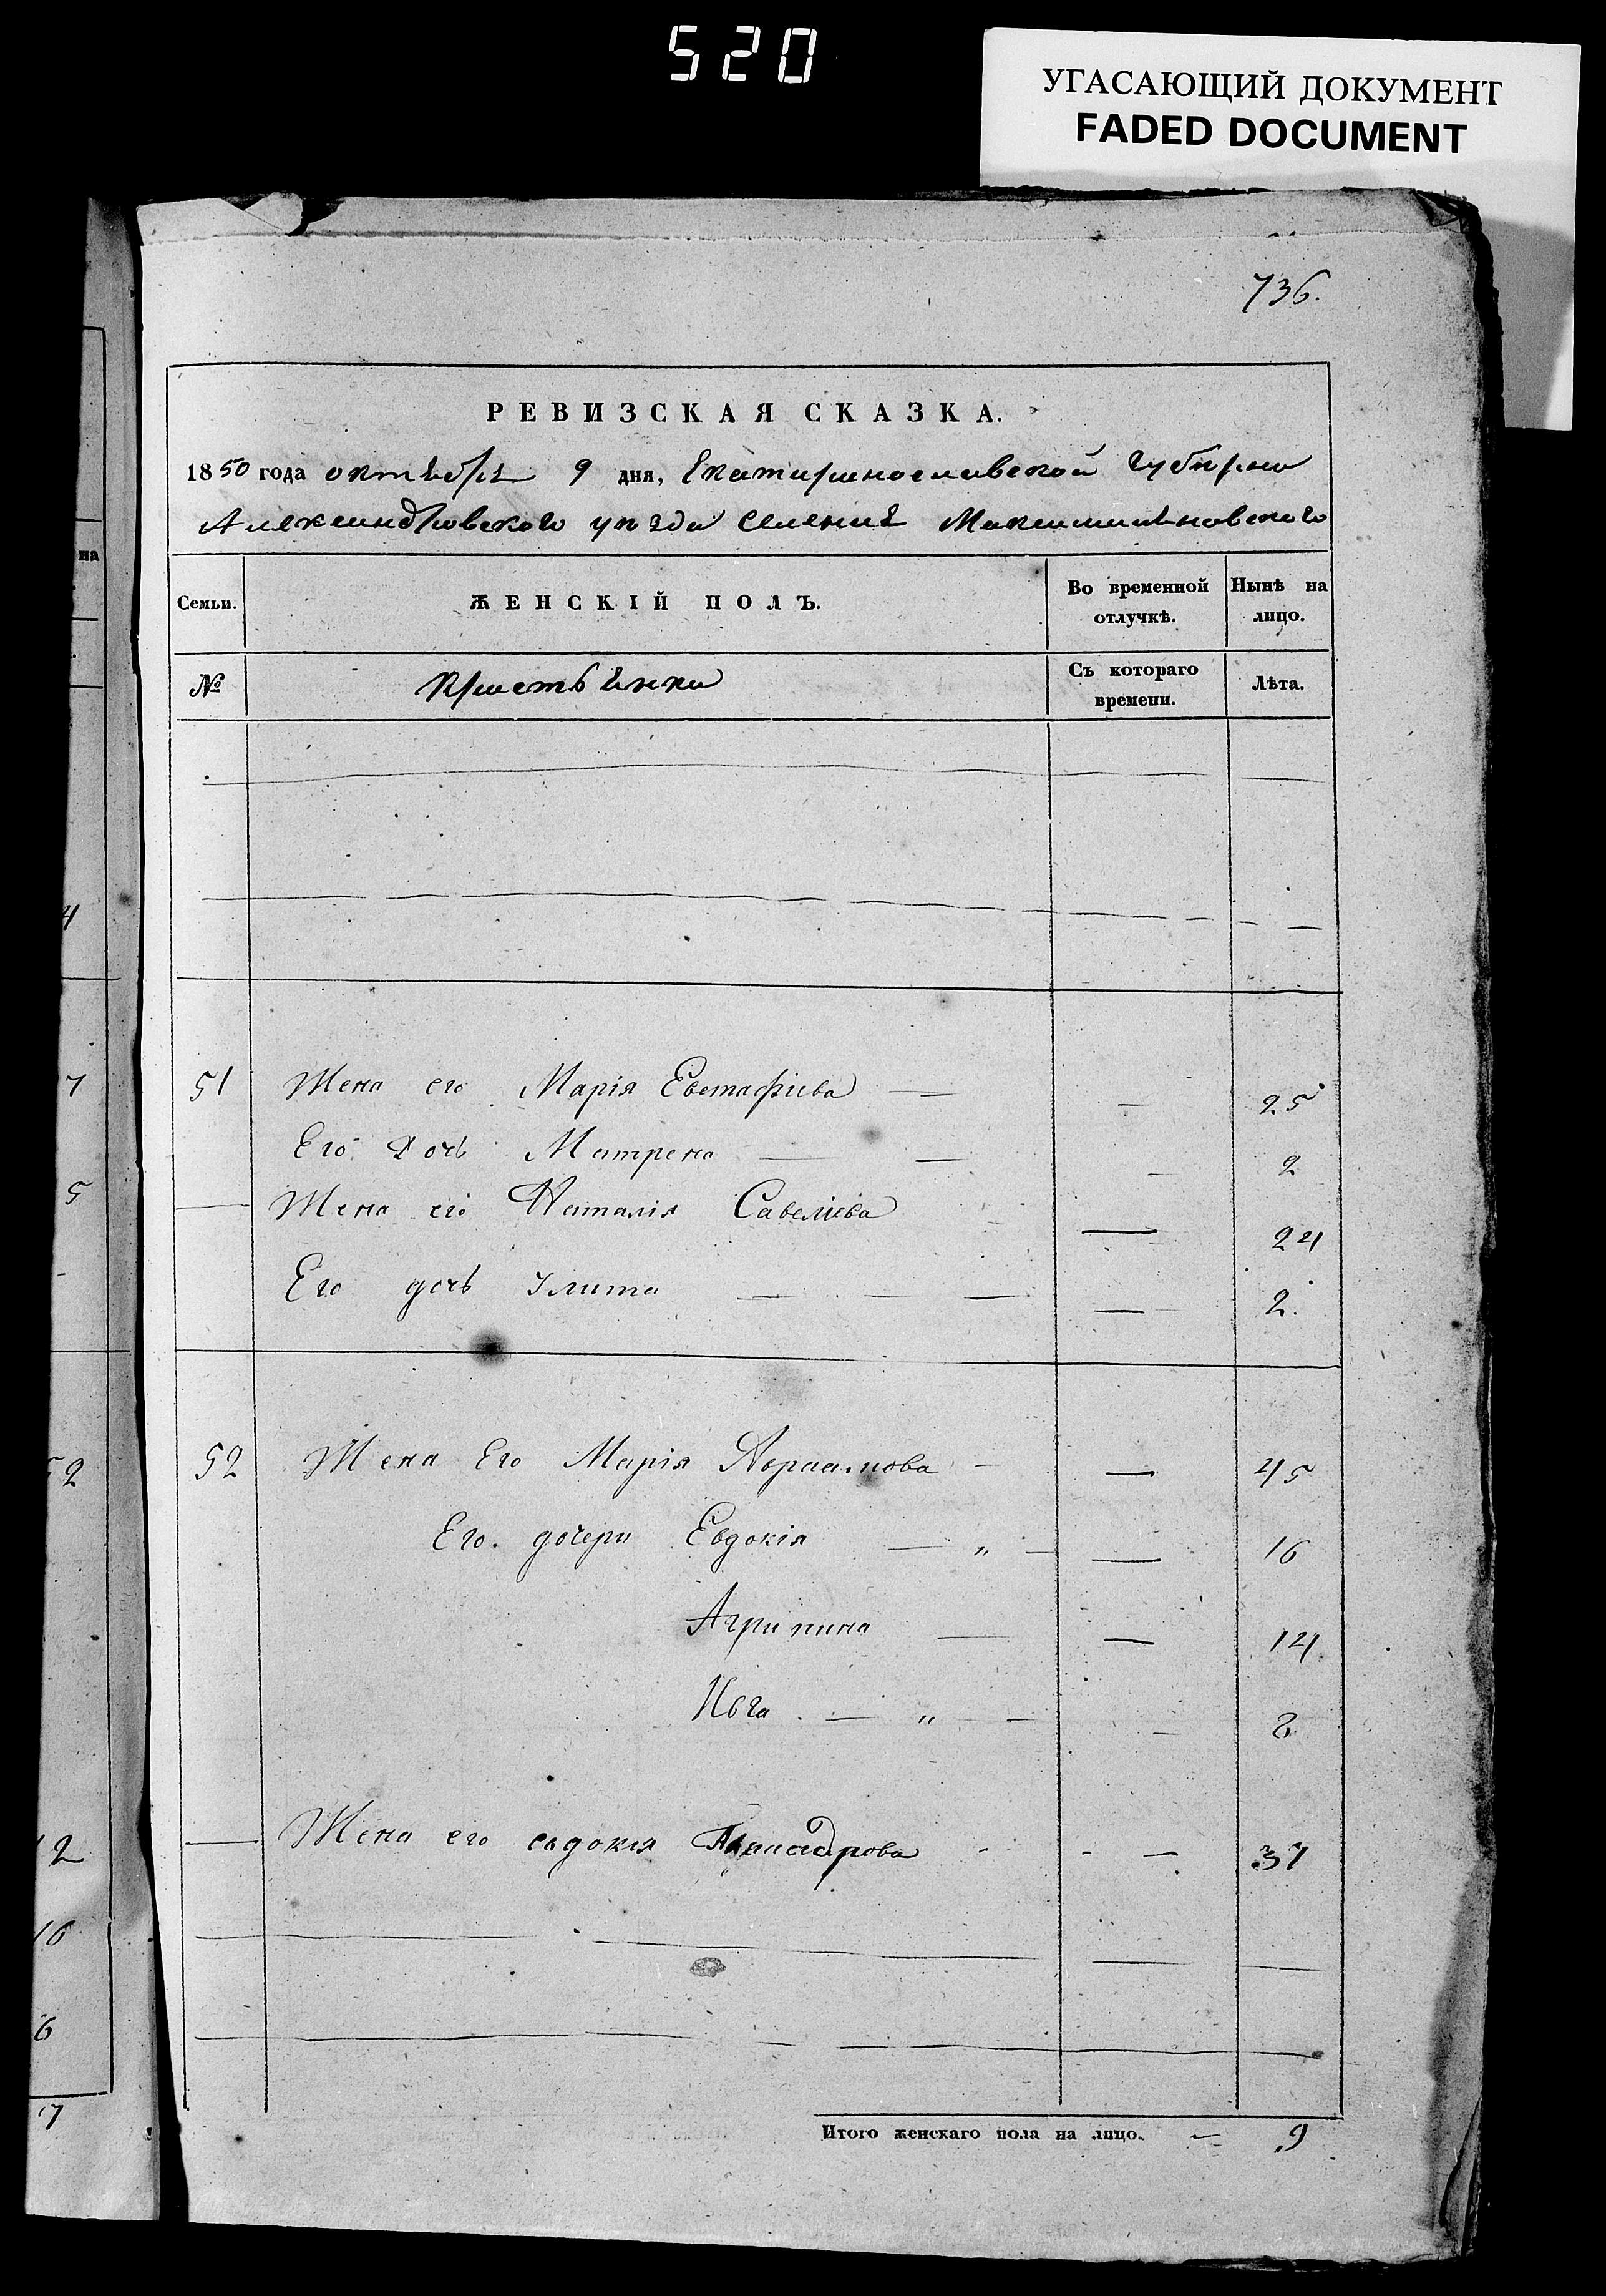 520
УГАСАЮЩИЙ ДОКУМЕНТ
FADED DOCUMENT
736.
РЕВИЗСКАЯ СКАЗКА.
1850 года октября 9 дня, Екатеринославской Губерніи
Александровского уезда Селения Максимилиановского
Семьи. ЖЕНСКІЙ ПОЛЪ. Во временной отлучкѣ. Нынѣ на лицо.
№ Крестьянки Съ котораго времени. Лѣта.
51 Жена его Марія Евстафіева — — 25
Его Дочь Матрена — — — 2
— Жена его Наталія Савеліева — 24
Его дочь Улита — — — — 2.
52 Жена Его Марія Авраамова — — 45
Его дочери Евдокія — „ — — 16
Агрипина — — 14
Ивга — „ — —
— Жена его евдокия - - — 37
Итого женскаго пола на лицо. — 9
на
4
7
5
52
12
16
6
17